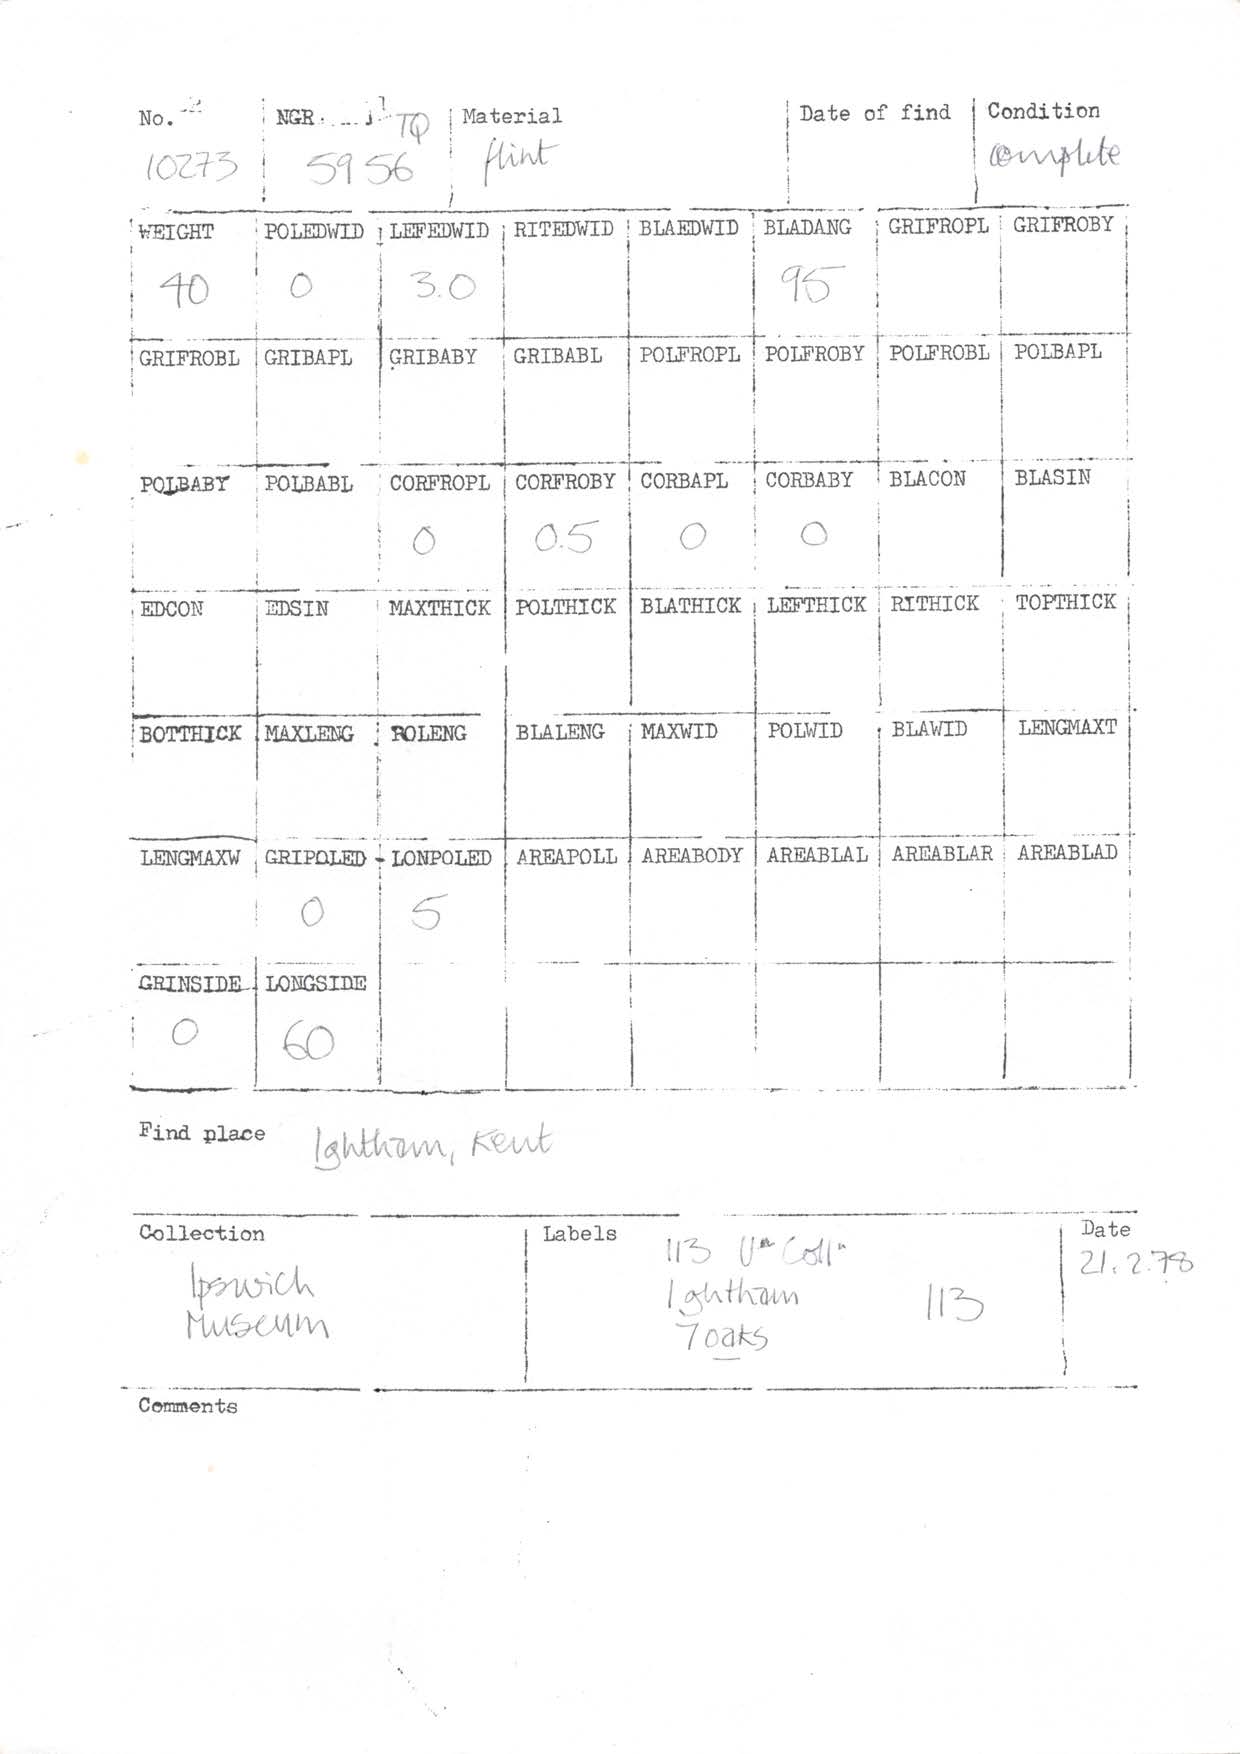 No. NGR TQ Material Date of find Condition
10273 5956 flint complete
WEIGHT POLEDWID LEFEDWID RITEDWID BLAEDWID BLADANG GRIFROPL GRIFROBY
40 0 3.0 95
GRIFROBL GRIBAPL GRIBABY GRIBABL POLFROPL POLFROBY POLFROBL POLBAPL
POLBABY POLBABL CORFROPL CORFROBY CORBAPL CORBABY BLACON BLASIN
0 0.5 0 0
EDCON EDSIN MAXTHICK POLTHICK BLATHICK LEFTHICK RITHICK TOPTHICK
BOTTHICK MAXLENG POLENG BLALENG MAXWID POLWID BLAWID LENGMAXT
LENGMAXW GRIPOLED LONPOLED AREAPOLL AREABODY AREABLAL AREABLAR AREABLAD
0 5
GRINSIDE LONGSIDE
0 60
Find place Ightham, Kent
Collection Labels Date
113 Coll
21.2.78
Ipswich Ightham 113
Museum 7oaks
Comments